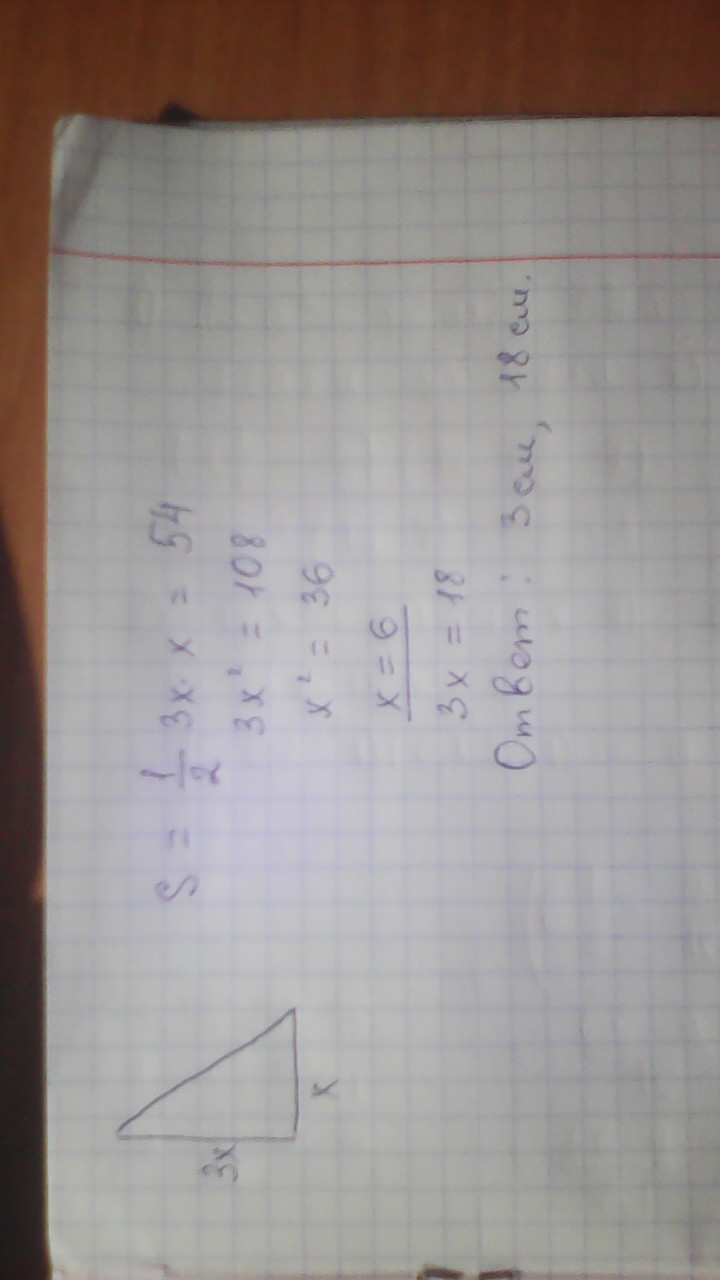 3x
x
S = 1/2 3x · x = 54
3x² = 108
x² = 36
x = 6
3x = 18
Ответ: 3 см, 18 см.